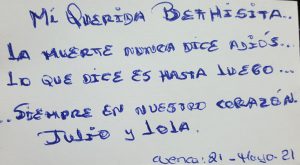 Mi Querida Bethisita..
La muerte nunca dice adiós...
Lo que dice es hasta luego...
..Siempre en nuestro corazón.
Julio y Lola.
Cuenca: 21-Mayo-21